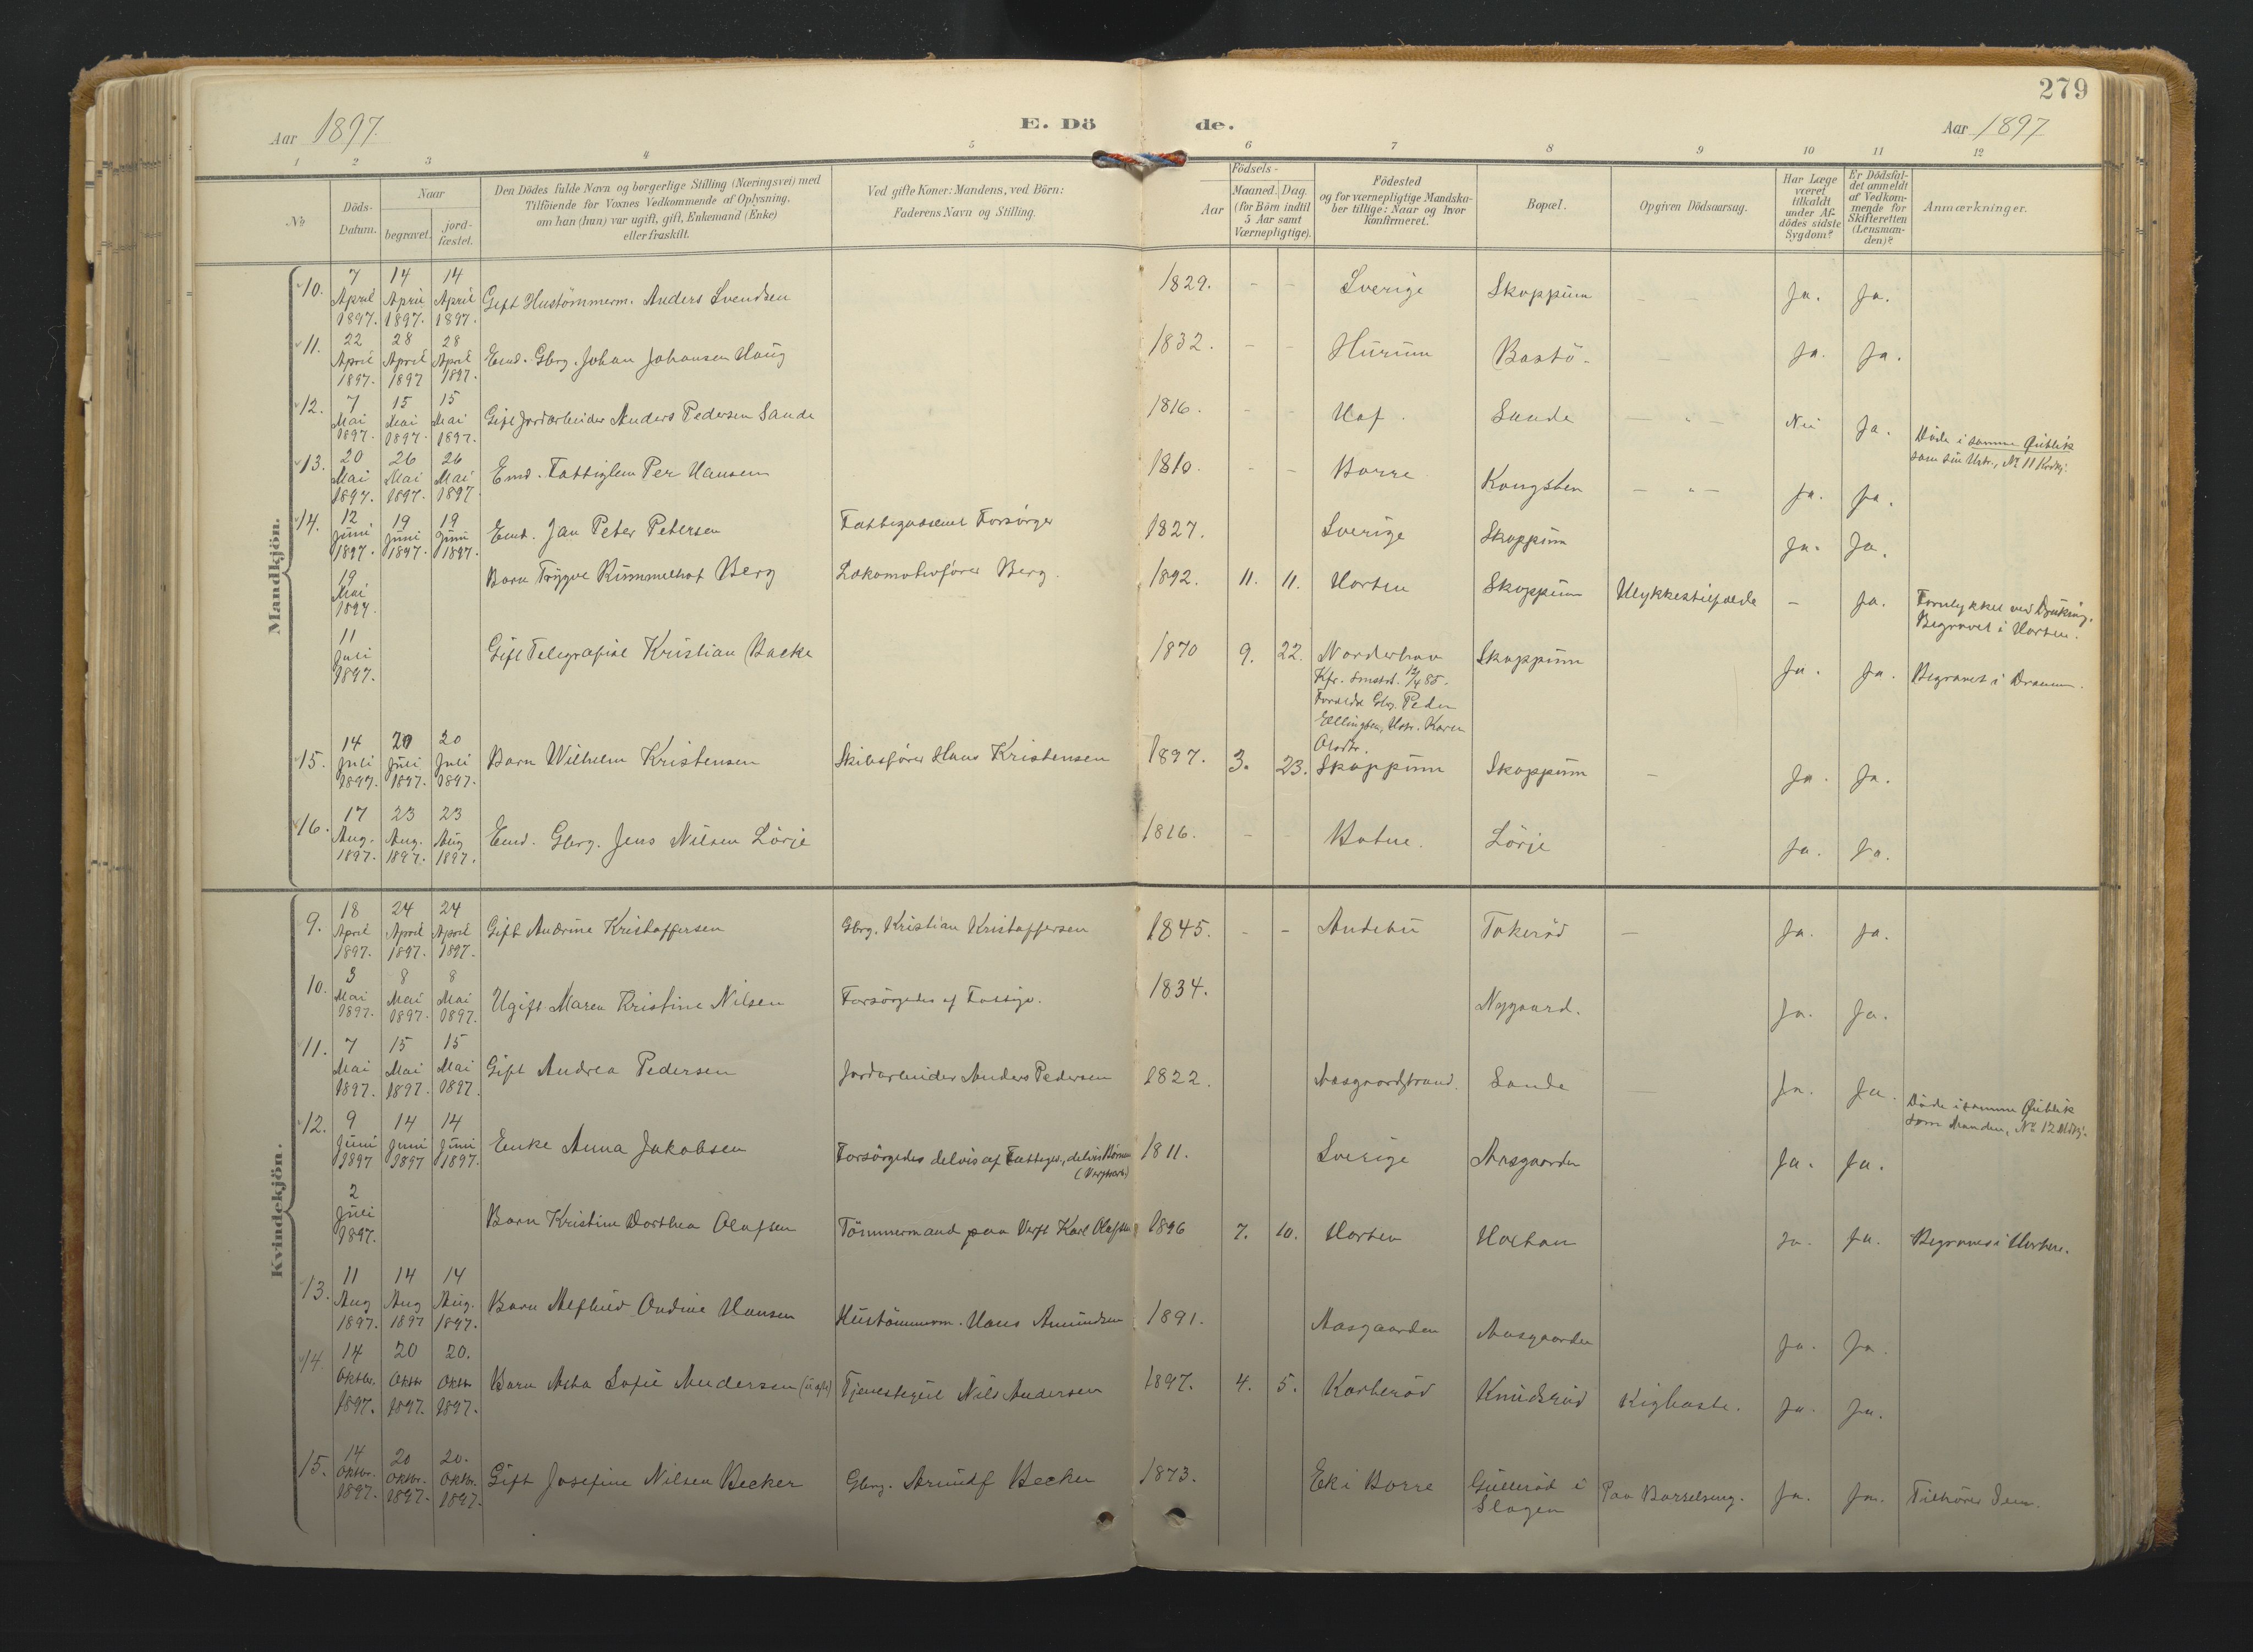 279
Aar 1897.
E. Döde.
Aar 1897
1 2 3 4 5 6 7 8 9 10 11 12
No.
Döds-Datum.
Naar
begravet.
jord-fæstet.
Den Dödes fulde Navn og borgerlige Stilling (Næringsvei) med
Tilföiende for Voxnes Vedkommende af Oplysning,
om han (hun) var ugift, gift, Enkemand (Enke)
eller fraskilt.
Ved gifte Koner: Mandens, ved Börn:
Faderens Navn og Stilling.
Födsels-
Aar
Maaned. Dag.
(for Börn indtil
5 Aar samt
Værnepligtige).
Födested
og for værnepligtige Mandska-
ber tillige: Naar og hvor
konfirmeret.
Bopæl.
Opgiven Dödsaarsag.
Har Læge
været
tilkaldt
under Af-
dödes sidste
Sygdom?
Er Dödsfal-
det anmeldt
af Vedkom-
mende for
Skifteretten
(Lensman-
den)?
Anmærkninger.
Mandkjön.
10. 7 April 1897. 14 April 1897. 14 April 1897. Gift Hustömmerm. Anders Svendsen 1829. - - Sverige Skoppum - - Ja. Ja.
11. 22 April 1897. 28 April 1897 28 April 1897. Emd. Gbrg. Johan Johansen Haug 1832. - - Hurum Bastö - Ja. Ja.
12. 7 Mai 1897. 15 Mai 1897. 15 Mai 1897. Gift Jordarbeider Anders Pedersen Sande 1816. - - Hof. Sande - " - Nei Ja. Döde i samme Øieblik
som sin Hstr., No 11 Kvdkj.
13. 20 Mai 1897. 26 Mai 1897. 26 Mai 1897 Emd. Fattiglem Per Hansen 1810. - - Borre Kongsten - " - Ja. Ja.
14. 12 Juni 1897. 19 Juni 1897. 19 Juni 1897. Emd. Jan Peter Petersen Fattigvæsenet Forsörger 1827. Sverige Skoppum Ja. Ja.
19 Mai 1897. Barn Trygve Rummelhof Berg Lokomotivförer Berg. 1892. 11. 11. Horten Skoppum Ulykkestilfælde - Ja. Forulykket ved Drukning.
Begravet i Horten.
11 Juli 1897. Gift Telegrafist Kristian Backe 1870 9. 22. Norderhov Skoppum Ja. Ja. Begravet i Drammen.
Kfr. smstds. 12/4 85.
Forældre Gbrg. Peder
Ellingsen, Hstr. Karen
Olsdtr.
15. 14 Juli 1897. 20 Juli 1897. 20 Juli 1897. Barn Wilhelm Kristensen Skibsförer Hans Kristensen 1897. 3. 23. Skoppum Skoppum - Ja. Ja.
16. 17 Aug. 1897. 23 Aug. 1897. 23 Aug 1897. Emd. Gbrg. Jens Nilsen Lörje 1816. - - Botne. Lörje Ja. Ja.
Kvindekjön.
9. 18 April 1897. 24 April 1897. 24 April 1897. Gift Andrine Kristoffersen Gbrg. Kristian Kristoffersen 1845. - - Andebu Tokeröd - Ja. Ja.
10. 3 Mai 1897. 8 Mai 1897. 8 Mai 1897. Ugift Maren Kristine Nilsen Forsörgedes af Fattigv. 1834. Nygaard. Ja. Ja.
11. 7 Mai 1897. 15 Mai 1897. 15 Mai 1897. Gift Andrea Pedersen Jordarbeider Anders Pedersen 1822. Aasgaardstrand. Sande - Ja. Ja. Döde i samme Øieblik
som Manden, No 12 Mdkj.
12. 9 Juni 1897 14 Juni 1897 14 Juni 1897. Enke Anna Jakobsen Forsörgedes delvis af Fattigv., delvis Börnene 1811. Sverige Aasgaarden Ja. Ja.
2 Juli 1897. Barn Kristine Dorthea Olafsen Tömmermand paa Verft Karl Olafsen 1896 7. 10. Horten Holtan Ja. Ja. Begraves i Horten.
13. 11 Aug 1897. 14 Aug 1897 14 Aug. 1897. Barn Alfhild Ondine Hansen Hustömmerm. Hans Amundsen 1891. Aasgaarden Aasgaarden Ja. Ja.
14. 14 Oktbr. 1897. 20 Oktbr 1897. 20. Oktbr 1897. Barn Asta Sofie Andersen (u. æ.) Tjenestegut Nils Andersen 1897. 4. 5. Korteröd Knudsröd Kighoste. Ja. Ja.
15. 14 Oktbr. 1897. 20 Oktbr. 1897. 20. Oktbr. 1897. Gift Josefine Nilsen Becker Gbrg. Arnulf Becker 1873. Ek i Borre Gulleröd i
Slagen Paa Barselseng. Ja. Ja. Tilhörer Sem.